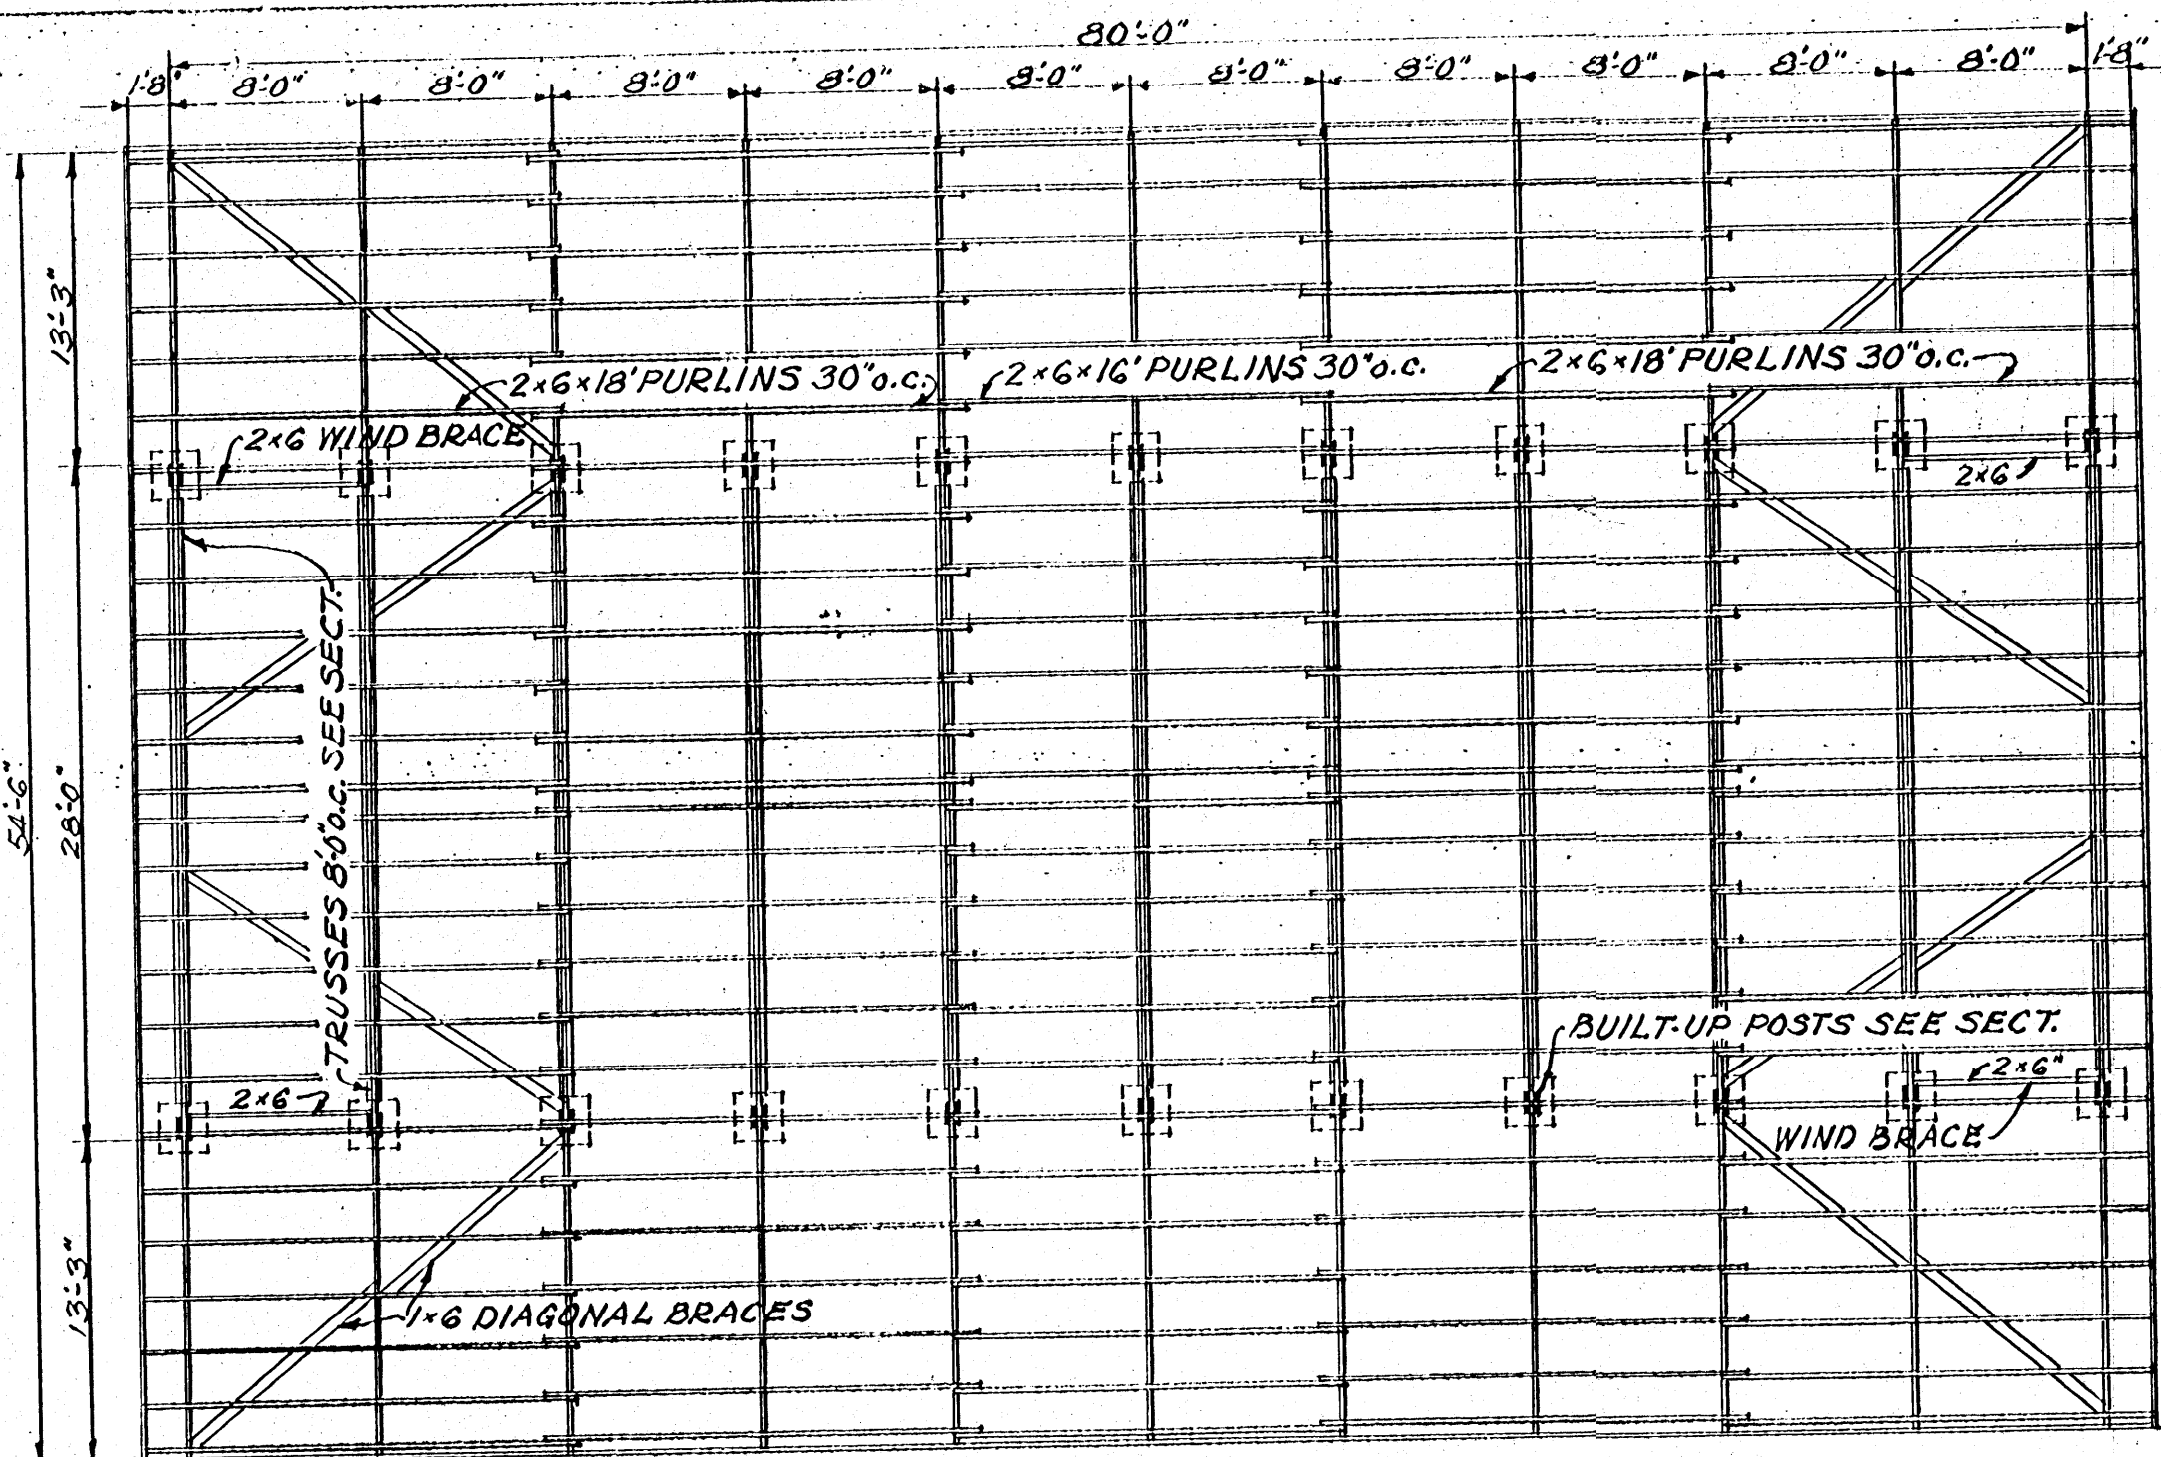 80'-0"
1'-8" 8'-0" 8'-0" 8'-0" 8'-0" 8'-0" 8'-0" 8'-0" 8'-0" 8'-0" 8'-0" 1'-8"
13'-3"
2×6×18' PURLINS 30" o.c.
2×6×16' PURLINS 30" o.c.
2×6×18' PURLINS 30" o.c.
2×6 WIND BRACE
2×6
TRUSSES 8'-0" o.c. SEE SECT.
54'-6"
28'-0"
BUILT-UP POSTS SEE SECT.
2×6
2×6"
WIND BRACE
13'-3"
1×6 DIAGONAL BRACES